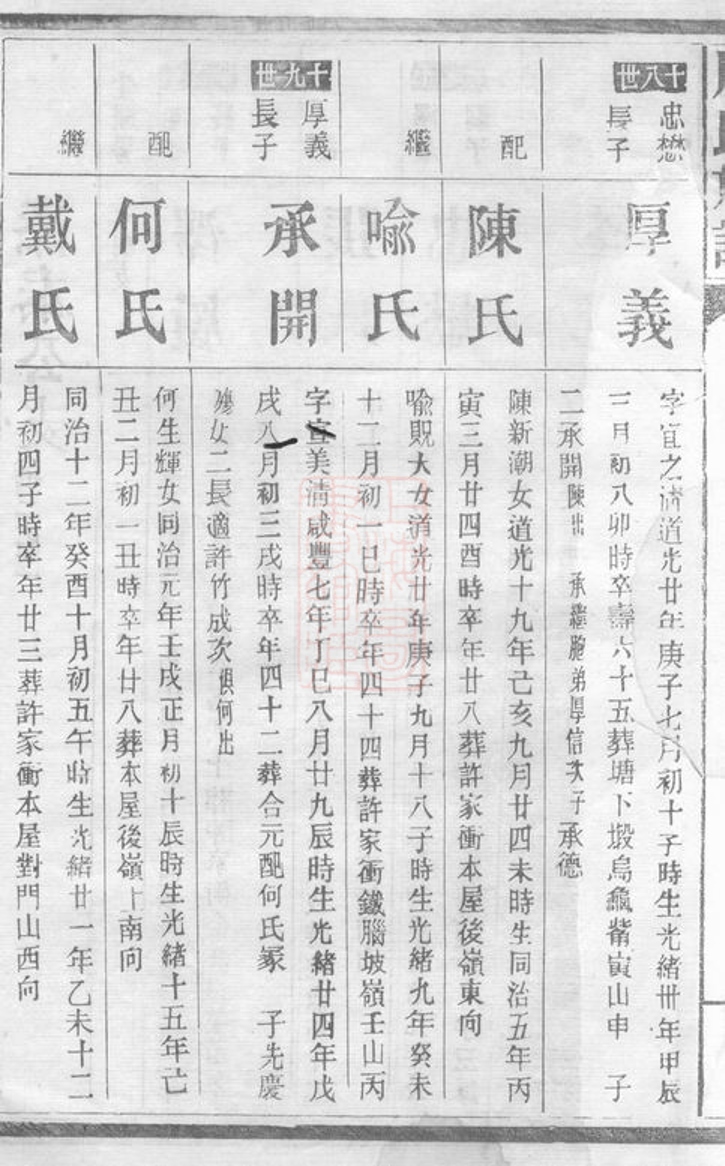 十八世
忠懋
長子
厚義
字宜之清道光廿年庚子七月初十子時生光緒卅年甲辰
三月初八卯時卒壽六十五葬塘下塅烏龜觜寅山申 子
二承開陳出 承繼胞弟厚信次子承德
配
陳氏
陳新潮女道光十九年己亥九月廿四未時生同治五年丙
寅三月廿四酉時卒年廿八葬許家衝本屋後嶺東向
繼
喩氏
喩貺大女道光廿年庚子九月十八子時生光緒九年癸未
十二月初一巳時卒年四十四葬許家衝鐵腦坡嶺壬山丙
十九世
厚義
長子
承開
字宣美清咸豐七年丁巳八月廿九辰時生光緒廿四年戊
戌八月初三戌時卒年四十二葬合元配何氏冢 子先慶
殤女二長適許竹成次俱何出
配
何氏
何生輝女同治元年壬戌正月初十辰時生光緒十五年己
丑二月初一丑時卒年廿八葬本屋後嶺上南向
繼
戴氏
同治十二年癸酉十月初五午時生光緒廿一年乙未十二
月初四子時卒年廿三葬許家衝本屋對門山西向